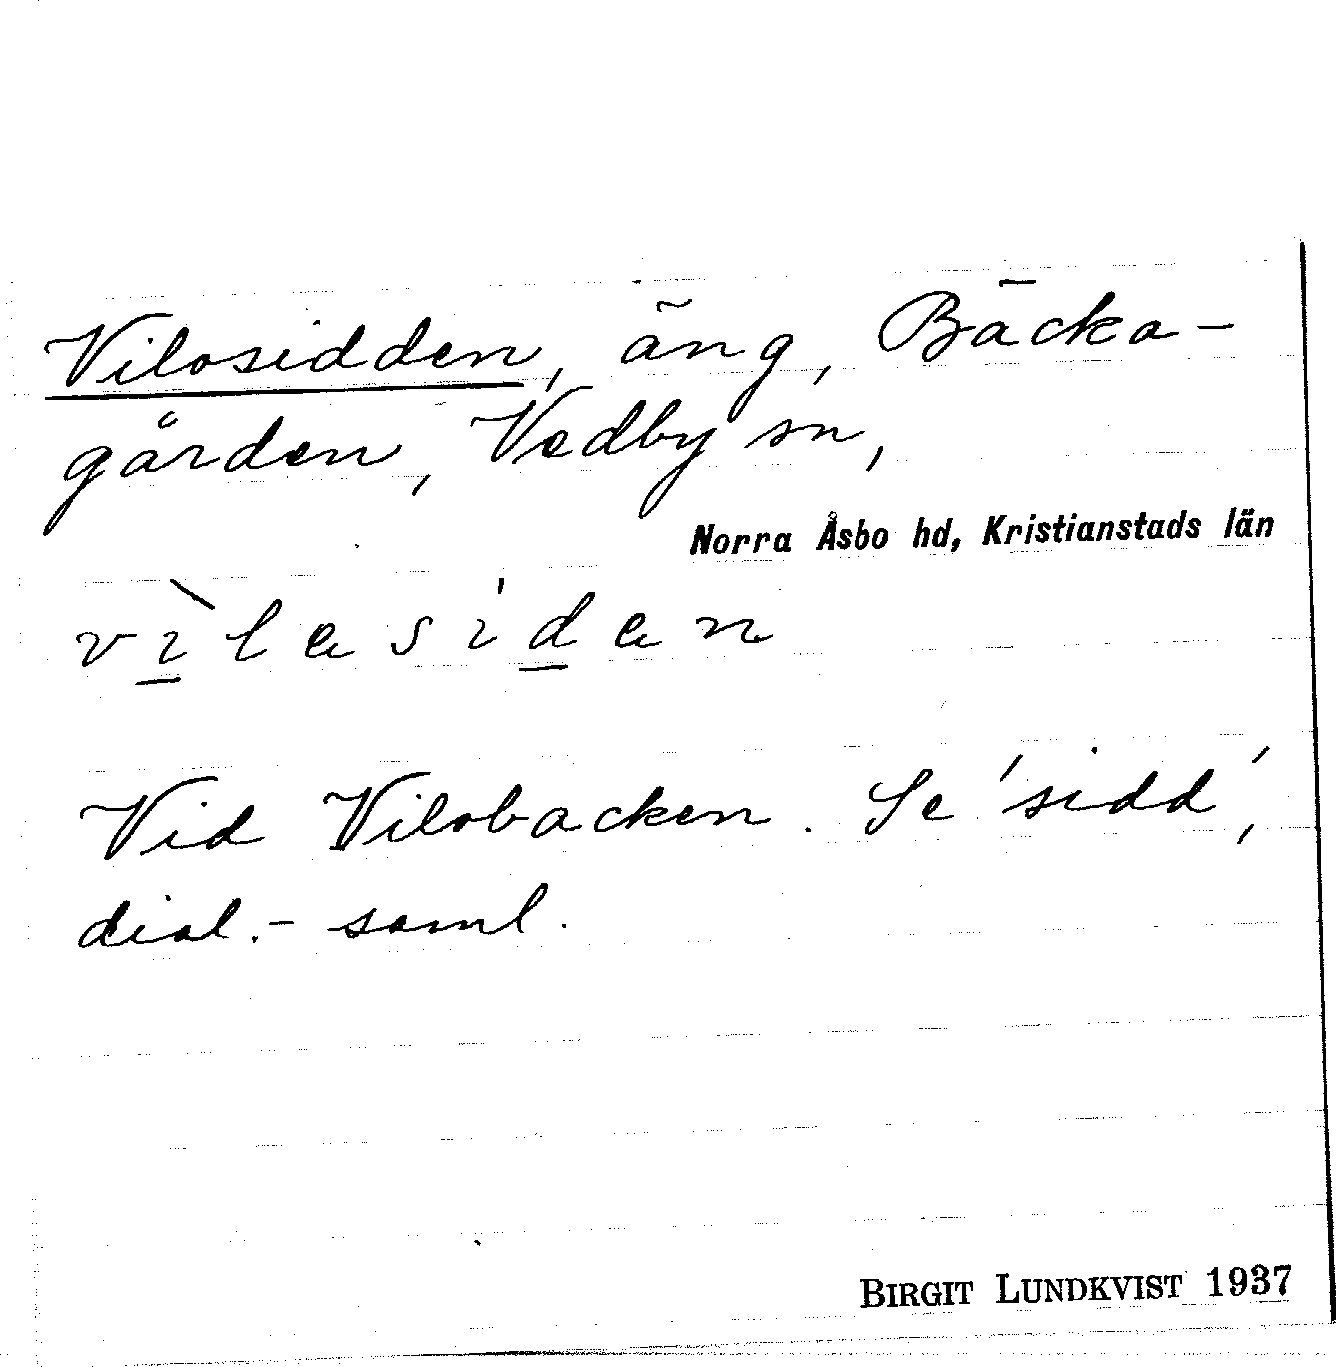 Vilosidden, äng, Bäcka-
gården, Vedby sn,
Norra Åsbo hd, Kristianstads län
Vid Vilobacken. Se 'sidd',
dial.-saml.
BIRGIT LUNDKVIST 1937